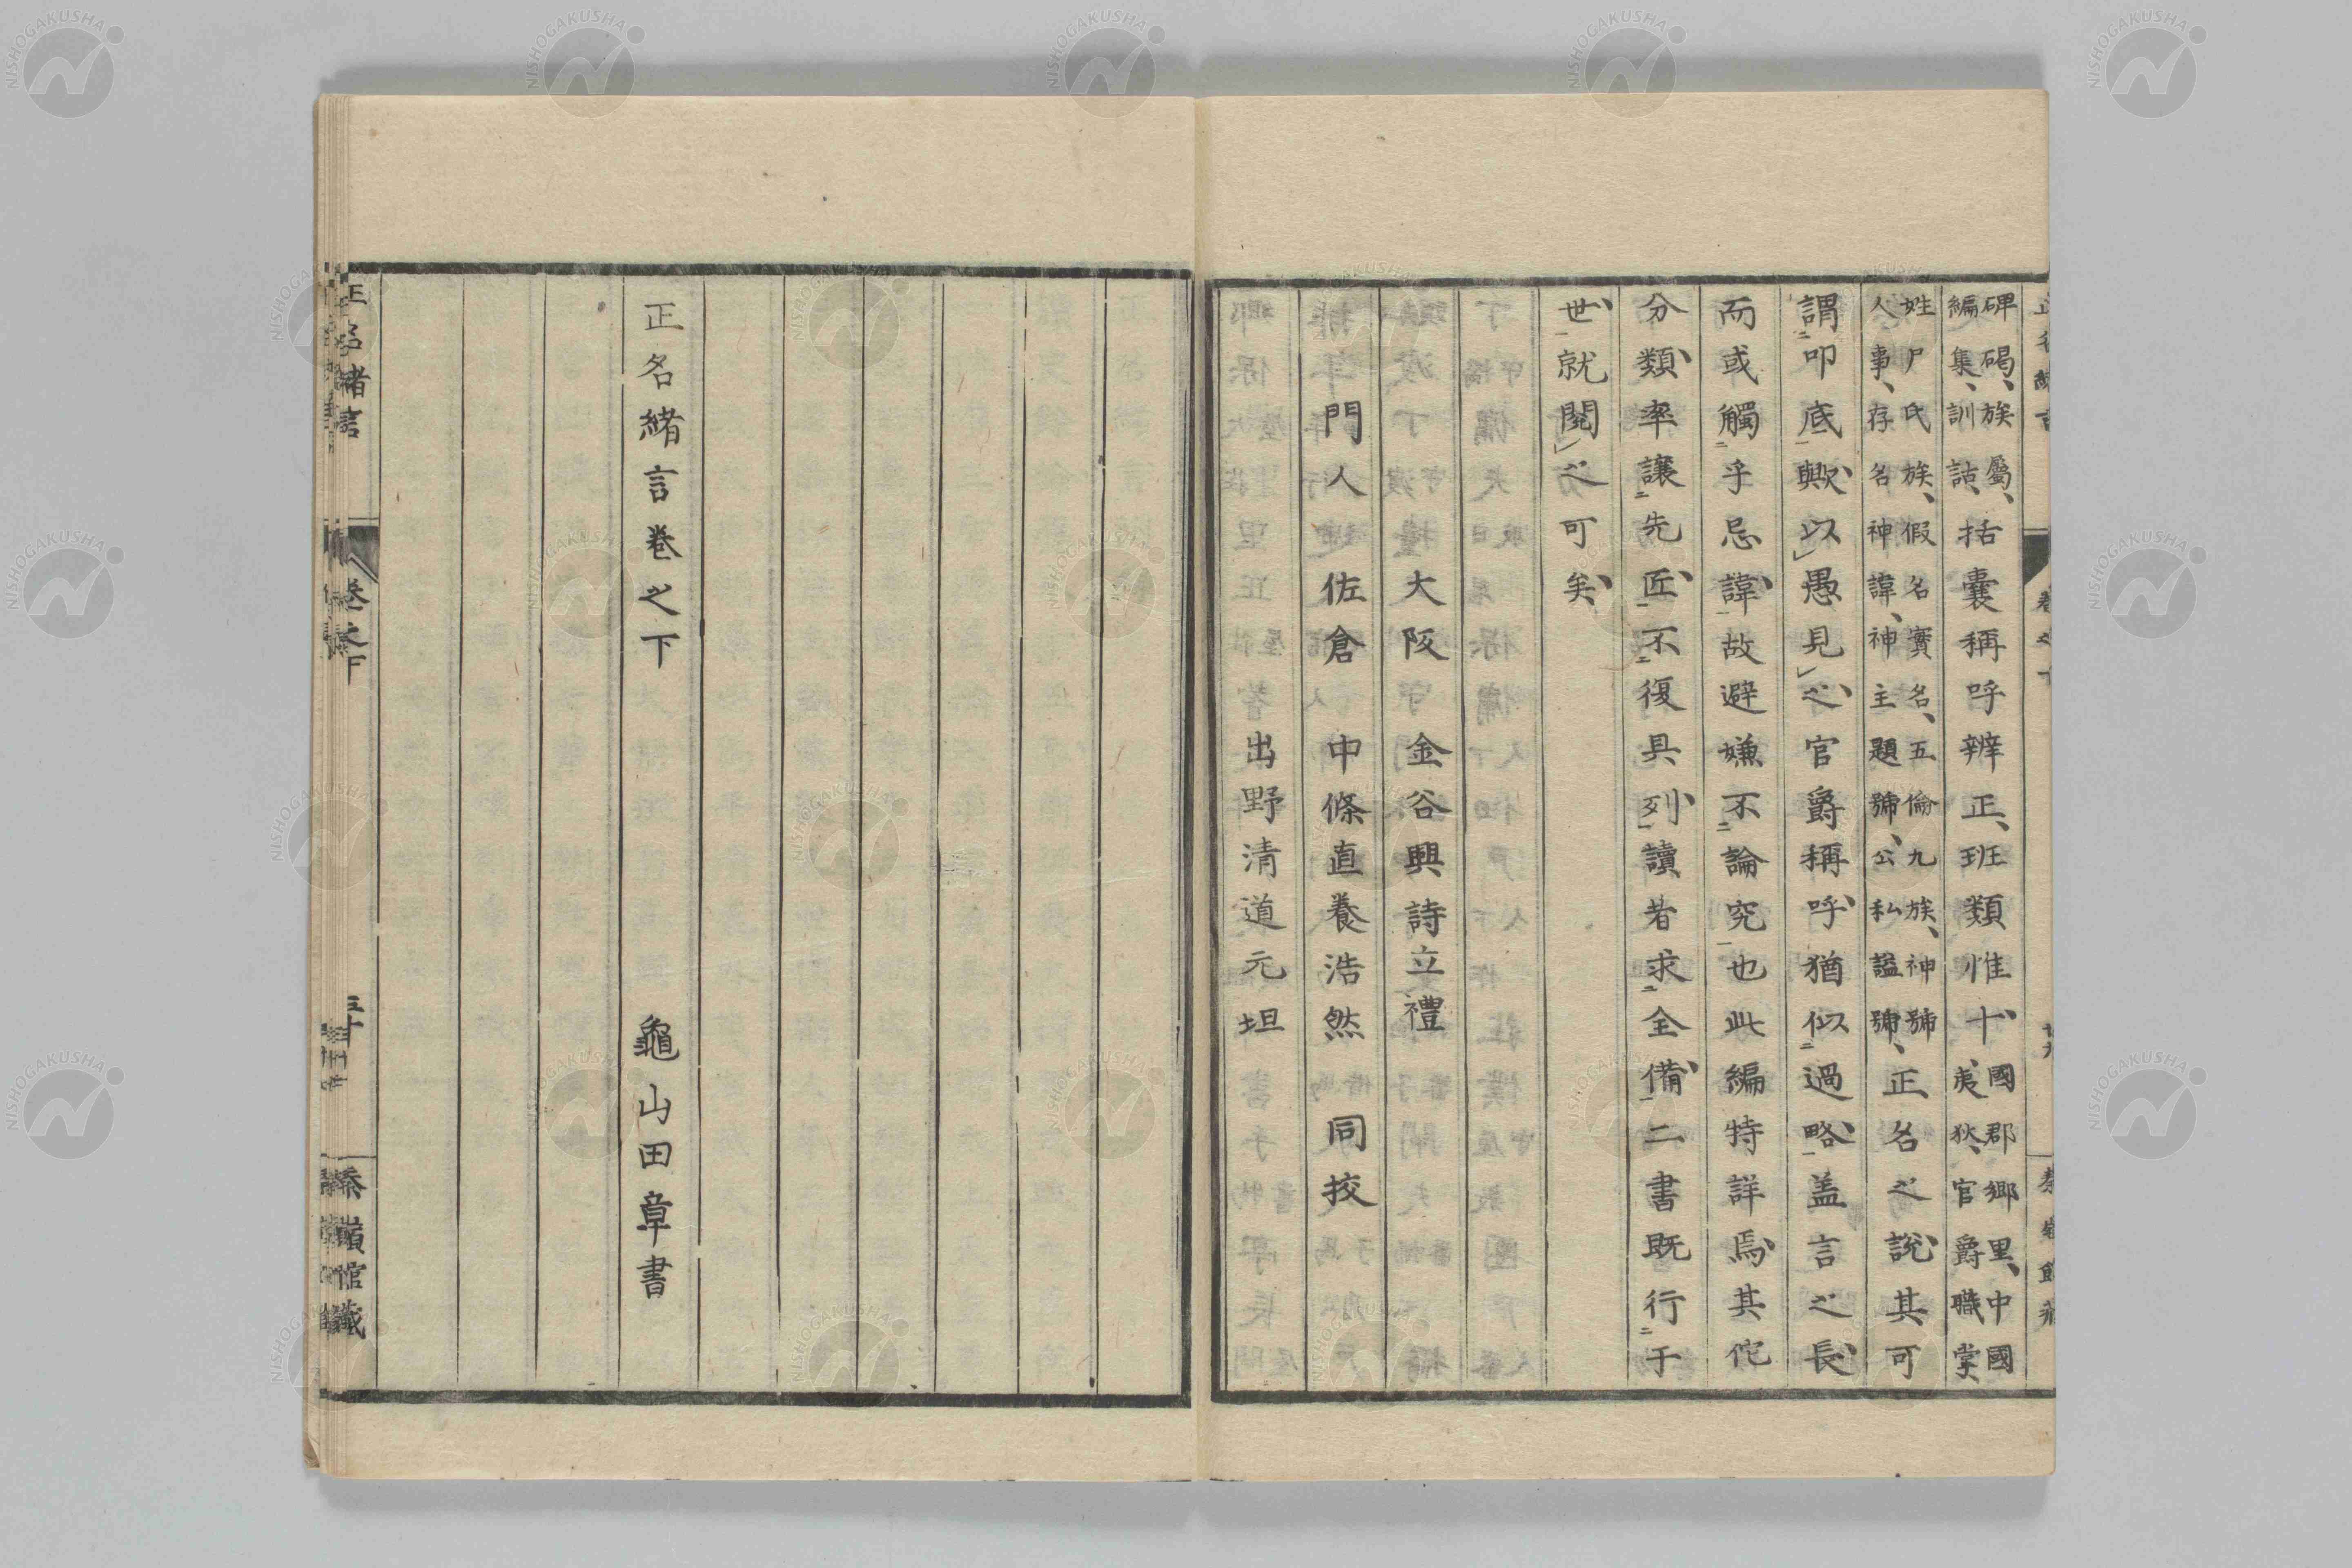 碑碣、族屬、
編集、訓詁、
括囊稱呼辨正、班類惟十、
國郡鄉里、中國
夷狄、官爵職掌、
姓尸氏族、假名實名、五倫九族、神號
人事、存名神諱、神主題號、公私謚號、
正名之說、其可
謂叩底歟、以愚見之、官爵稱呼、猶似過略、盖言之長、
而或觸乎忌諱、故避嫌不論究也此編特詳焉、其佗
分類、率讓先匠、不復具列、讀者求全備、二書既行于
世、就閱之可矣、
大阪 金谷興詩立禮
門人佐倉 中條直養浩然 同挍
出野清道元坦
正名緒言卷之下 龜山田章書
正名緒言 卷之下 三十
NISHOGAKUSHA